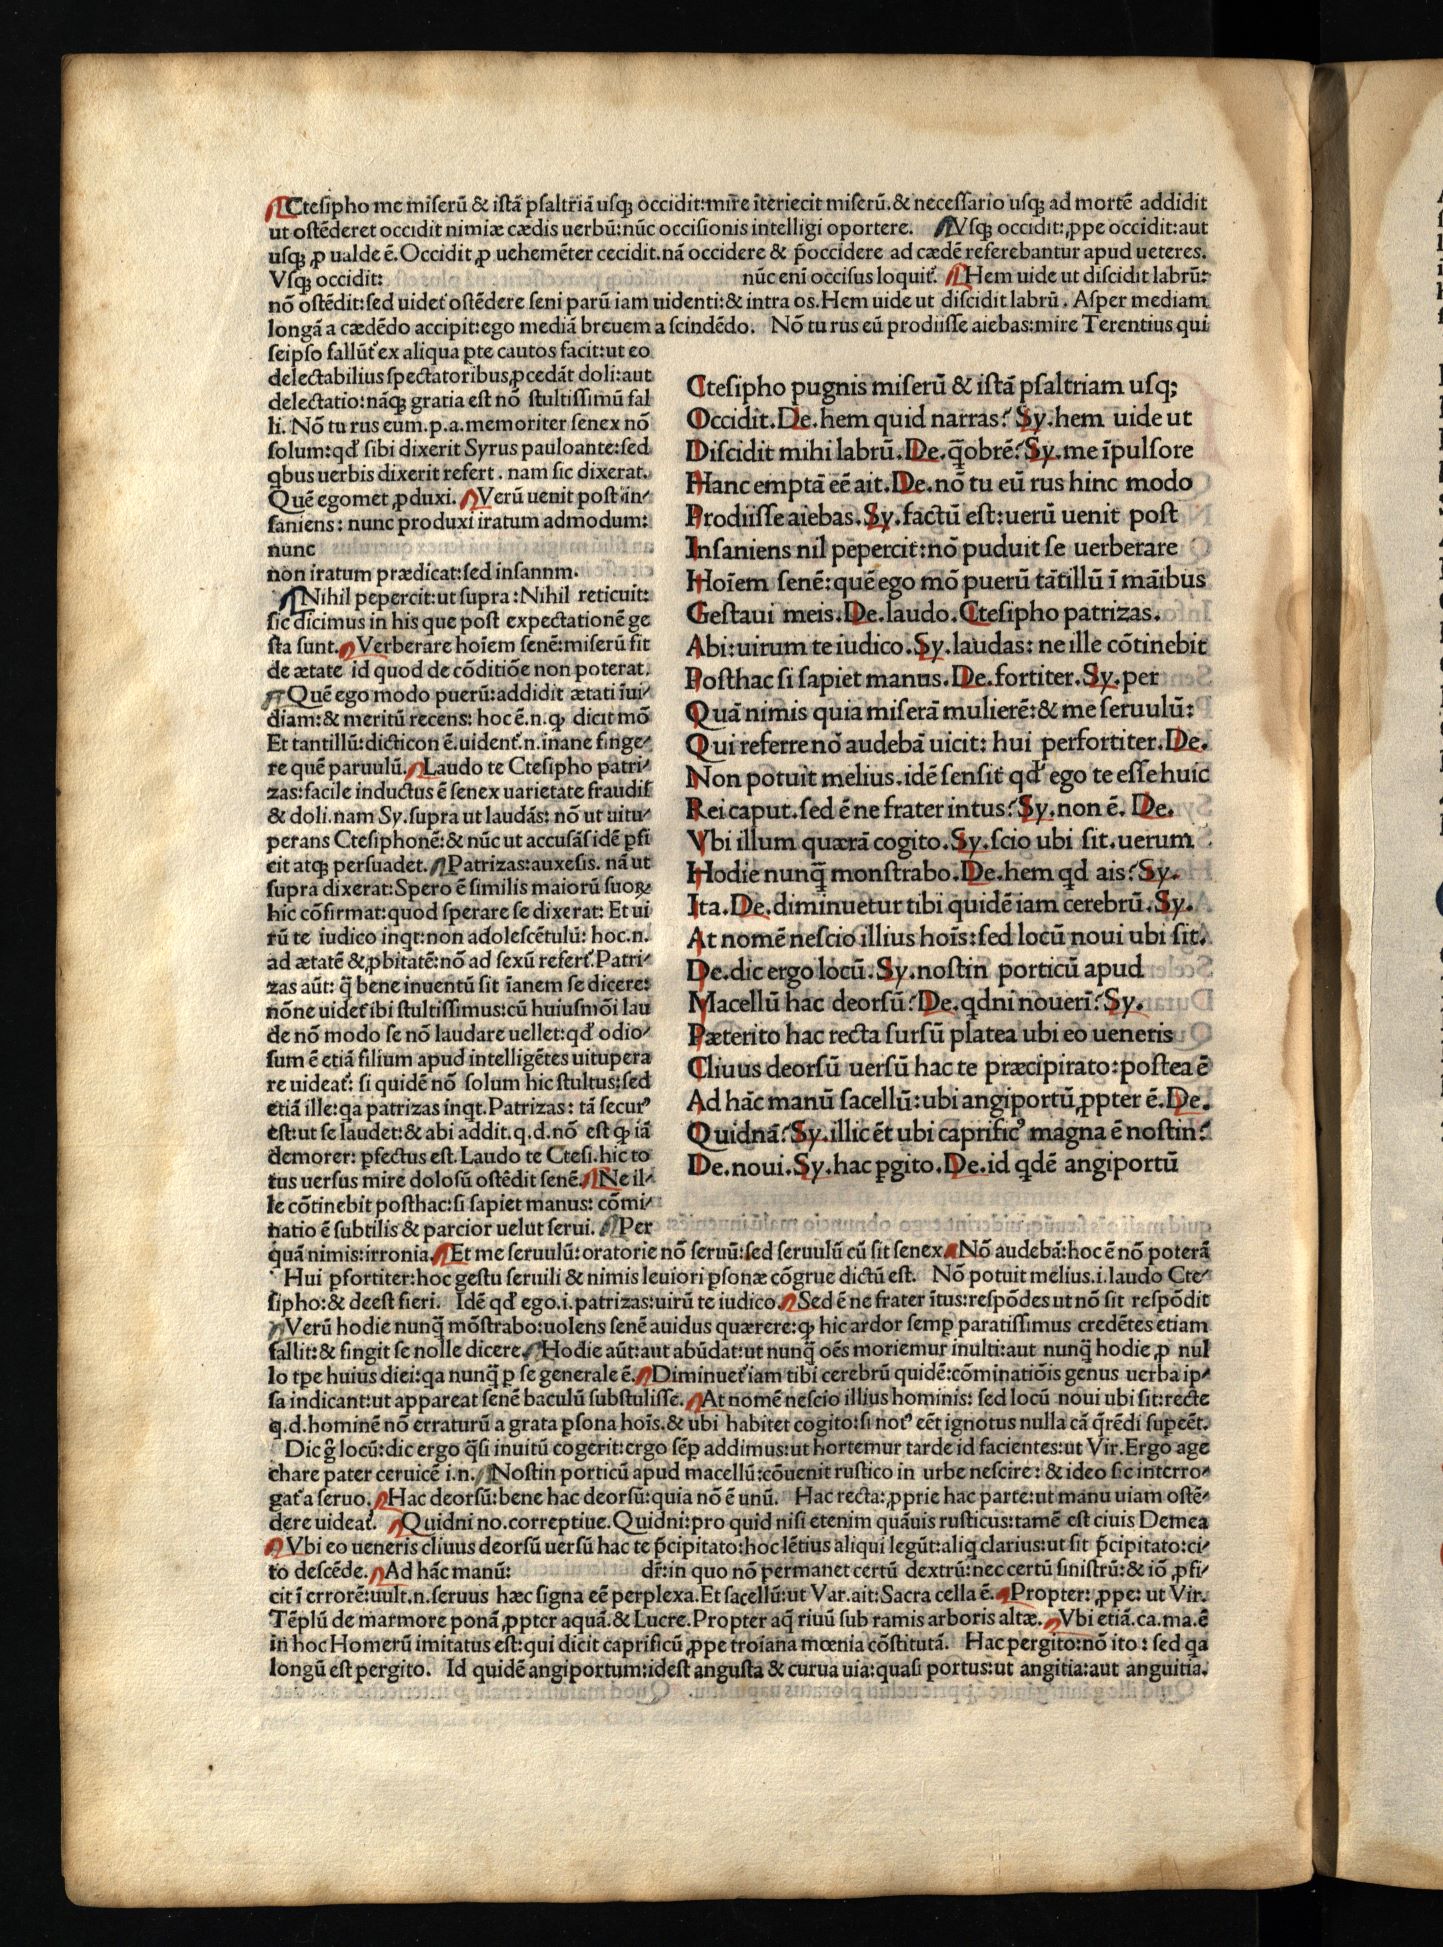 Ctesipho me miserū & istā psaltriā usq; occidit:mire īteriecit miserū.& necessario usq; ad mortē addidit
ut ostēderet occidit nimiæ cædis uerbū:nūc occisionis intelligi oportere. Vsq; occidit:ꝓpe occidit:aut
usq; ꝓ ualde ē.Occidit ꝓ uehemēter cecidit.nā occidere & p̄occidere ad cædē referebantur apud ueteres.
Vsq; occidit: nūc enī occisus loquit᷑. Hem uide ut discidit labrū:
nō ostēdit:sed uidet᷑ ostēdere seni parū iam uidenti:& intra os.Hem uide ut discidit labrū. Asper mediam
longā a cædēdo accipit:ego mediā breuem a scindēdo. Nō tu rus eū prodiisse aiebas:mire Terentius qui
seipso fallūt᷑ ex aliqua ꝑte cautos facit:ut eo
delectabilius spectatoribus ꝓcedāt doli:aut
delectatio:nāq; gratia est nō stultissimū fal
li. Nō tu rus eum.p.a.memoriter senex nō
solum:qđ sibi dixerit Syrus pauloante:sed
qbus uerbis dixerit refert. nam sic dixerat.
Quē egomet ꝓduxi. Verū uenit post in-
saniens: nunc produxi iratum admodum:
nunc
non iratum prædicat:sed insannm.
Nihil pepercit:ut supra:Nihil reticuit:
sic dicimus in his que post expectationē ge
sta sunt. Verberare hoīem senē:miserū fit
de ætate id quod de cōditiōe non poterat.
Quē ego modo puerū:addidit ætati īui-
diam:& meritū recens: hoc ē.n.ꝙ dicit mō
Et tantillū:dicticon ē.uident᷑.n.inane finge-
re quē paruulū. Laudo te Ctesipho patri-
zas:facile inductus ē senex uarietate fraudis
& doli.nam Sy.supra ut laudās: nō ut uitu-
perans Ctesiphonē:& nūc ut accusās idē ꝑfi
cit atq; persuadet. Patrizas:auxesis. nā ut
supra dixerat:Spero ē similis maiorū suoꝝ
hic cōfirmat:quod sperare se dixerat: Et ui
rū te iudico inqt:non adolescētulū: hoc.n.
ad ætatē & ꝓbitatē:nō ad sexū refert᷑.Patri-
zas aūt: q̄ bene inuentū sit īanem se dicere:
nōne uidet᷑ ibi stultissimus:cū huiusmōi lau
de nō modo se nō laudare uellet:qđ odio-
sum ē etiā filium apud intelligētes uitupera
re uideat᷑: si quidē nō solum hic stultus:sed
etiā ille:qa patrizas inqt.Patrizas: tā secur᷒
est:ut se laudet:& abi addit.q.d.nō est ꝙ iā
demorer: ꝑfectus est.Laudo te Ctesi.hic to
tus uersus mire dolosū ostēdit senē. Ne il-
le cōtinebit posthac:si sapiet manus: cōmi-
natio ē subtilis & parcior uelut serui. Per
quā nimis:irronia. Et me seruulū:oratorie nō seruū:sed seruulū cū sit senex. Nō audebā:hoc ē nō poterā
Hui ꝑfortiter:hoc gestu seruili & nimis leuiori ꝑsonæ cōgrue dictū est. Nō potuit melius.i.laudo Cte-
sipho:& deest fieri. Idē qđ ego.i.patrizas:uirū te iudico. Sed ē ne frater ītus:respōdes ut nō sit respōdit
Verū hodie nunq̄ mōstrabo:uolens senē auidus quærere:ꝙ hic ardor semꝑ paratissimus credētes etiam
fallit:& fingit se nolle dicere. Hodie aūt:aut abūdat:ut nunq̄ oēs moriemur inulti:aut nunq̄ hodie ꝓ nul
lo tꝑe huius diei:qa nunq̄ ꝑ se generale ē. Diminuet᷑ iam tibi cerebrū quidē:cōminatiōis genus uerba ip-
sa indicant:ut appareat senē baculū substulisse. At nomē nescio illius hominis: sed locū noui ubi sit:recte
q.d.hominē nō erraturū a grata ꝑsona hoīs.& ubi habitet cogito:si not᷒ eēt ignotus nulla cā q̄rēdi supeēt.
Dic g̊ locū:dic ergo q̄si inuitū cogerit:ergo sēꝑ addimus:ut hortemur tarde id facientes:ut Vir.Ergo age
chare pater ceruicē i.n. Nostin porticū apud macellū:cōuenit rustico in urbe nescire: & ideo sic interro-
gat᷑ a seruo. Hac deorsū:bene hac deorsū:quia nō ē unū. Hac recta:ꝓprie hac parte:ut manu uiam ostē-
dere uideat᷑. Quidni no.correptiue.Quidni:pro quid nisi etenim quāuis rusticus:tamē est ciuis Demea
Vbi eo ueneris cliuus deorsū uersū hac te p̄cipitato:hoc lētius aliqui legūt:aliq clarius:ut sit p̄cipitato:ci-
to descēde. Ad hāc manū: dr̄:in quo nō permanet certū dextrū:nec certū sinistrū:& iō ꝓfi-
cit ī errorē:uult.n.seruus hæc signa eē perplexa.Et sacellū:ut Var.ait:Sacra cella ē. Propter: ꝓpe: ut Vir.
Tēplū de marmore ponā ꝓpter aquā.& Lucre.Propter aq̄ riuū sub ramis arboris altæ. Vbi etiā.ca.ma.ē
in hoc Homerū imitatus est:qui dicit caprificū ꝓpe troiana mœnia cōstitutā. Hac pergito:nō ito: sed qa
longū est pergito. Id quidē angiportum:idest angusta & curua uia:quasi portus:ut angitia:aut anguitia.
Ctesipho pugnis miserū & istā psaltriam usq;
Occidit.De.hem quid narras? Sy.hem uide ut
Discidit mihi labrū.De.q̄obrē? Sy.me īpulsore
Hanc emptā eē ait.De.nō tu eū rus hinc modo
Prodiisse aiebas.Sy.factū est:uerū uenit post
Insaniens nil pepercit:nō puduit se uerberare
Hoīem senē:quē ego mō puerū tātillū ī māibus
Gestaui meis.De.laudo.Ctesipho patrizas.
Abi:uirum te iudico.Sy.laudas: ne ille cōtinebit
Posthac si sapiet manus.De.fortiter.Sy.per
Quā nimis quia miserā mulierē:& me seruulū:
Qui referre nō audebā uicit: hui perfortiter.De.
Non potuit melius.idē sensit qđ ego te esse huic
Rei caput.sed ē ne frater intus? Sy.non ē. De.
Vbi illum quærā cogito.Sy.scio ubi sit.uerum
Hodie nunq̄ monstrabo.De.hem qd ais? Sy.
Ita.De.diminuetur tibi quidē iam cerebrū.Sy.
At nomē nescio illius hoīs:sed locū noui ubi sit.
De.dic ergo locū.Sy.nostin porticū apud
Macellū hac deorsū? De.qdni nouerī? Sy.
Pæterito hac recta sursū platea ubi eo ueneris
Cliuus deorsū uersū hac te præcipirato:postea ē
Ad hāc manū sacellū:ubi angiportū ꝓpter ē.De.
Quidnā? Sy.illic ēt ubi caprific᷒ magna ē nostin?
De.noui.Sy.hac ꝑgito.De.id qdē angiportū